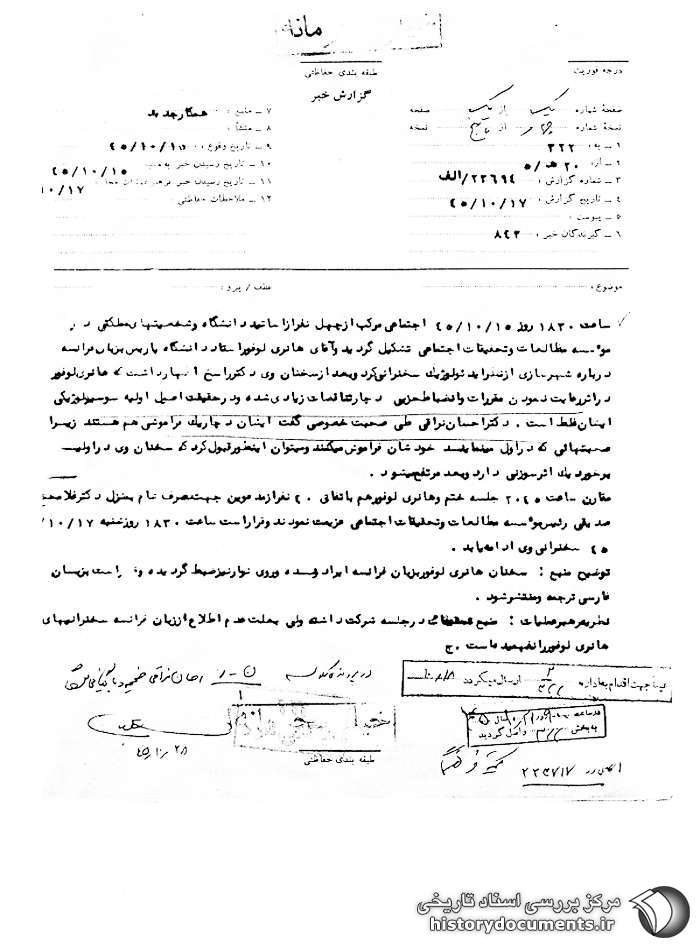 طبقه بندی حفاظتی
درجه فوریت
گزارش خبر
صفحهٔ شماره یک از یک صفحه
نسخهٔ شماره از پنج نسخه
۱ ـ به : ۳۲۲
۲ ـ از : ۲۰ هـ/۵
۳ ـ شماره گزارش : ۲۲۶۹۴/الف
۴ ـ تاریخ گزارش : ۴۵/۱۰/۱۷
۵ ـ پیوست :
۶ ـ گیرندگان خبر : ۸۴۲
۷ ـ منبع : همکار جدید
۸ ـ منشأ :
۹ ـ تاریخ وقوع : ۴۵/۱۰/۱۵
۱۰ ـ تاریخ رسیدن خبر به منبع ۴۵/۱۰/۱۵
۱۱ ـ تاریخ رسیدن خبر برهبر عملیات ۱۰/۱۷
۱۲ ـ ملاحظات حفاظتی :
موضوع :
عطف / پیرو :
ساعت ۱۸۳۰ روز ۴۵/۱۰/۱۵ اجتماعی مرکب از چهل نفر از اساتید دانشگاه و شخصیتهای مملکتی در
موسسه مطالعات و تحقیقات اجتماعی تشکیل گردید و آقای هانری لوفور استاد دانشگاه پاریس بزبان فرانسه
درباره شهرسازی از نظر اید ئولوژیک سخنرانی کرد و بعد از سخنان وی دکتر راسخ اظهار داشت که هانری لوفور
در اثر رعایت ننمودن مقررات و انضباط حزبی دچار تناقضات زیادی شده و در حقیقت اصل اولیه سوسیولوژیکی
ایشان غلط است . دکتر احسان نراقی طی صحبت خصوصی گفت ایشان دچار یک فراموشی هم هستند زیرا
صحبتهائی که در اول مینمایند خودشان فراموش میکنند و میتوان اینطور قبول کرد که سخنان وی در اولین
برخورد یک اثر سوزنی دارد و بعد مرتفع میشود .
مقارن ساعت ۲۰۴۵ جلسه ختم و هانری لوفور هم باتفاق ۲۰ نفر از مدعوین جهت صرف شام بمنزل دکتر غلامحسین
صدیقی رئیس موسسه مطالعات و تحقیقات اجتماعی عزیمت نمودند و قرار است ساعت ۱۸۳۰ روز شنبه ۱۰/۱۷/
۴۵ سخنرانی وی ادامه یابد .
توضیح منبع : سخنان هانری لوفور بزبان فرانسه ایراد شده و روی نوار نیز ضبط گردیده و قرار است بزبان
فارسی ترجمه و منتشر شود .
نظریه رهبر عملیات : منبع در جلسه شرکت داشته ولی بعلت عدم اطلاع از زبان فرانسه سخنرانیهای
هانری لوفور را نفهمیده است . ج
عیناً جهت اقدام به اداره ۳۲۲ ارسال میگردد
در پرونده احسان نراقی ضمیمه و بایگانی شود
به بخش ۳۲۲ واصل گردید
۴۵/۱۰/۲۸
طبقه بندی حفاظتی
۲۲۴۷۱۷
مرکز بررسی اسناد تاریخی
historydocuments.ir